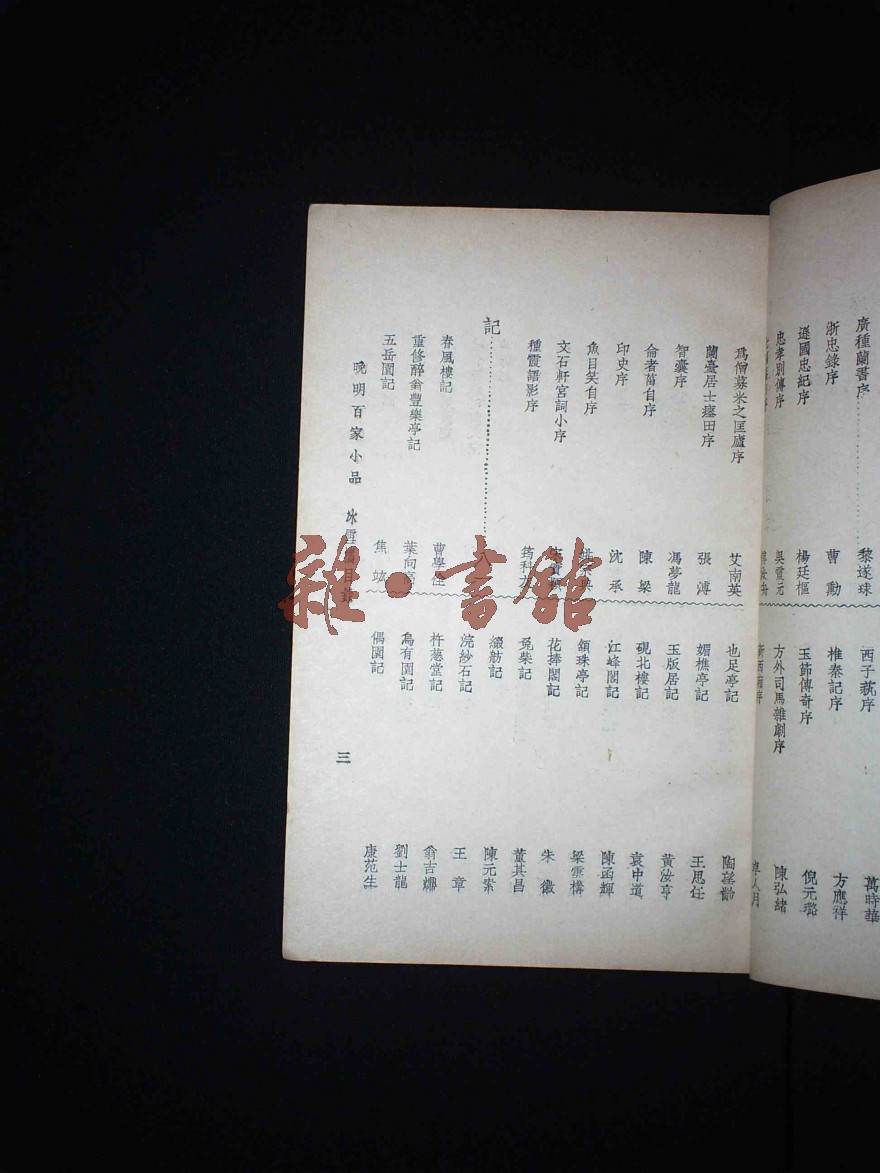 廣種蘭書序 黎遂球
浙忠錄序 曹勳
遜國忠紀序 楊廷樞
忠孝別傳序 吳震元
西子蓺序 萬時華
椎秦記序 方應祥
玉節傳奇序 倪元璐
方外司馬雜劇序 陳弘緒
新西廂序 卓人月
爲僧募米之匡廬序 艾南英
蘭臺居士瘞田序 張溥
智囊序 馮夢龍
侖者菑自序 陳梁
印史序 沈承
魚目笑自序
文石軒宮詞小序
種霞語影序
記
春風樓記 曹學佺
重修醉翁豐樂亭記 葉向高
五岳園記 焦竑
也足亭記 陶望齡
媚樵亭記 王思任
玉版居記 黃汝亨
硯北樓記 袁中道
江峰閣記 陳函輝
頷珠亭記 梁雲構
花捧閣記 朱徽
兎柴記 董其昌
綴舫記 陳元素
浣紗石記 王章
杵蔥堂記 翁吉
烏有園記 劉士龍
偶園記 康范生
晚明百家小品 冰雪
三
雜·書館